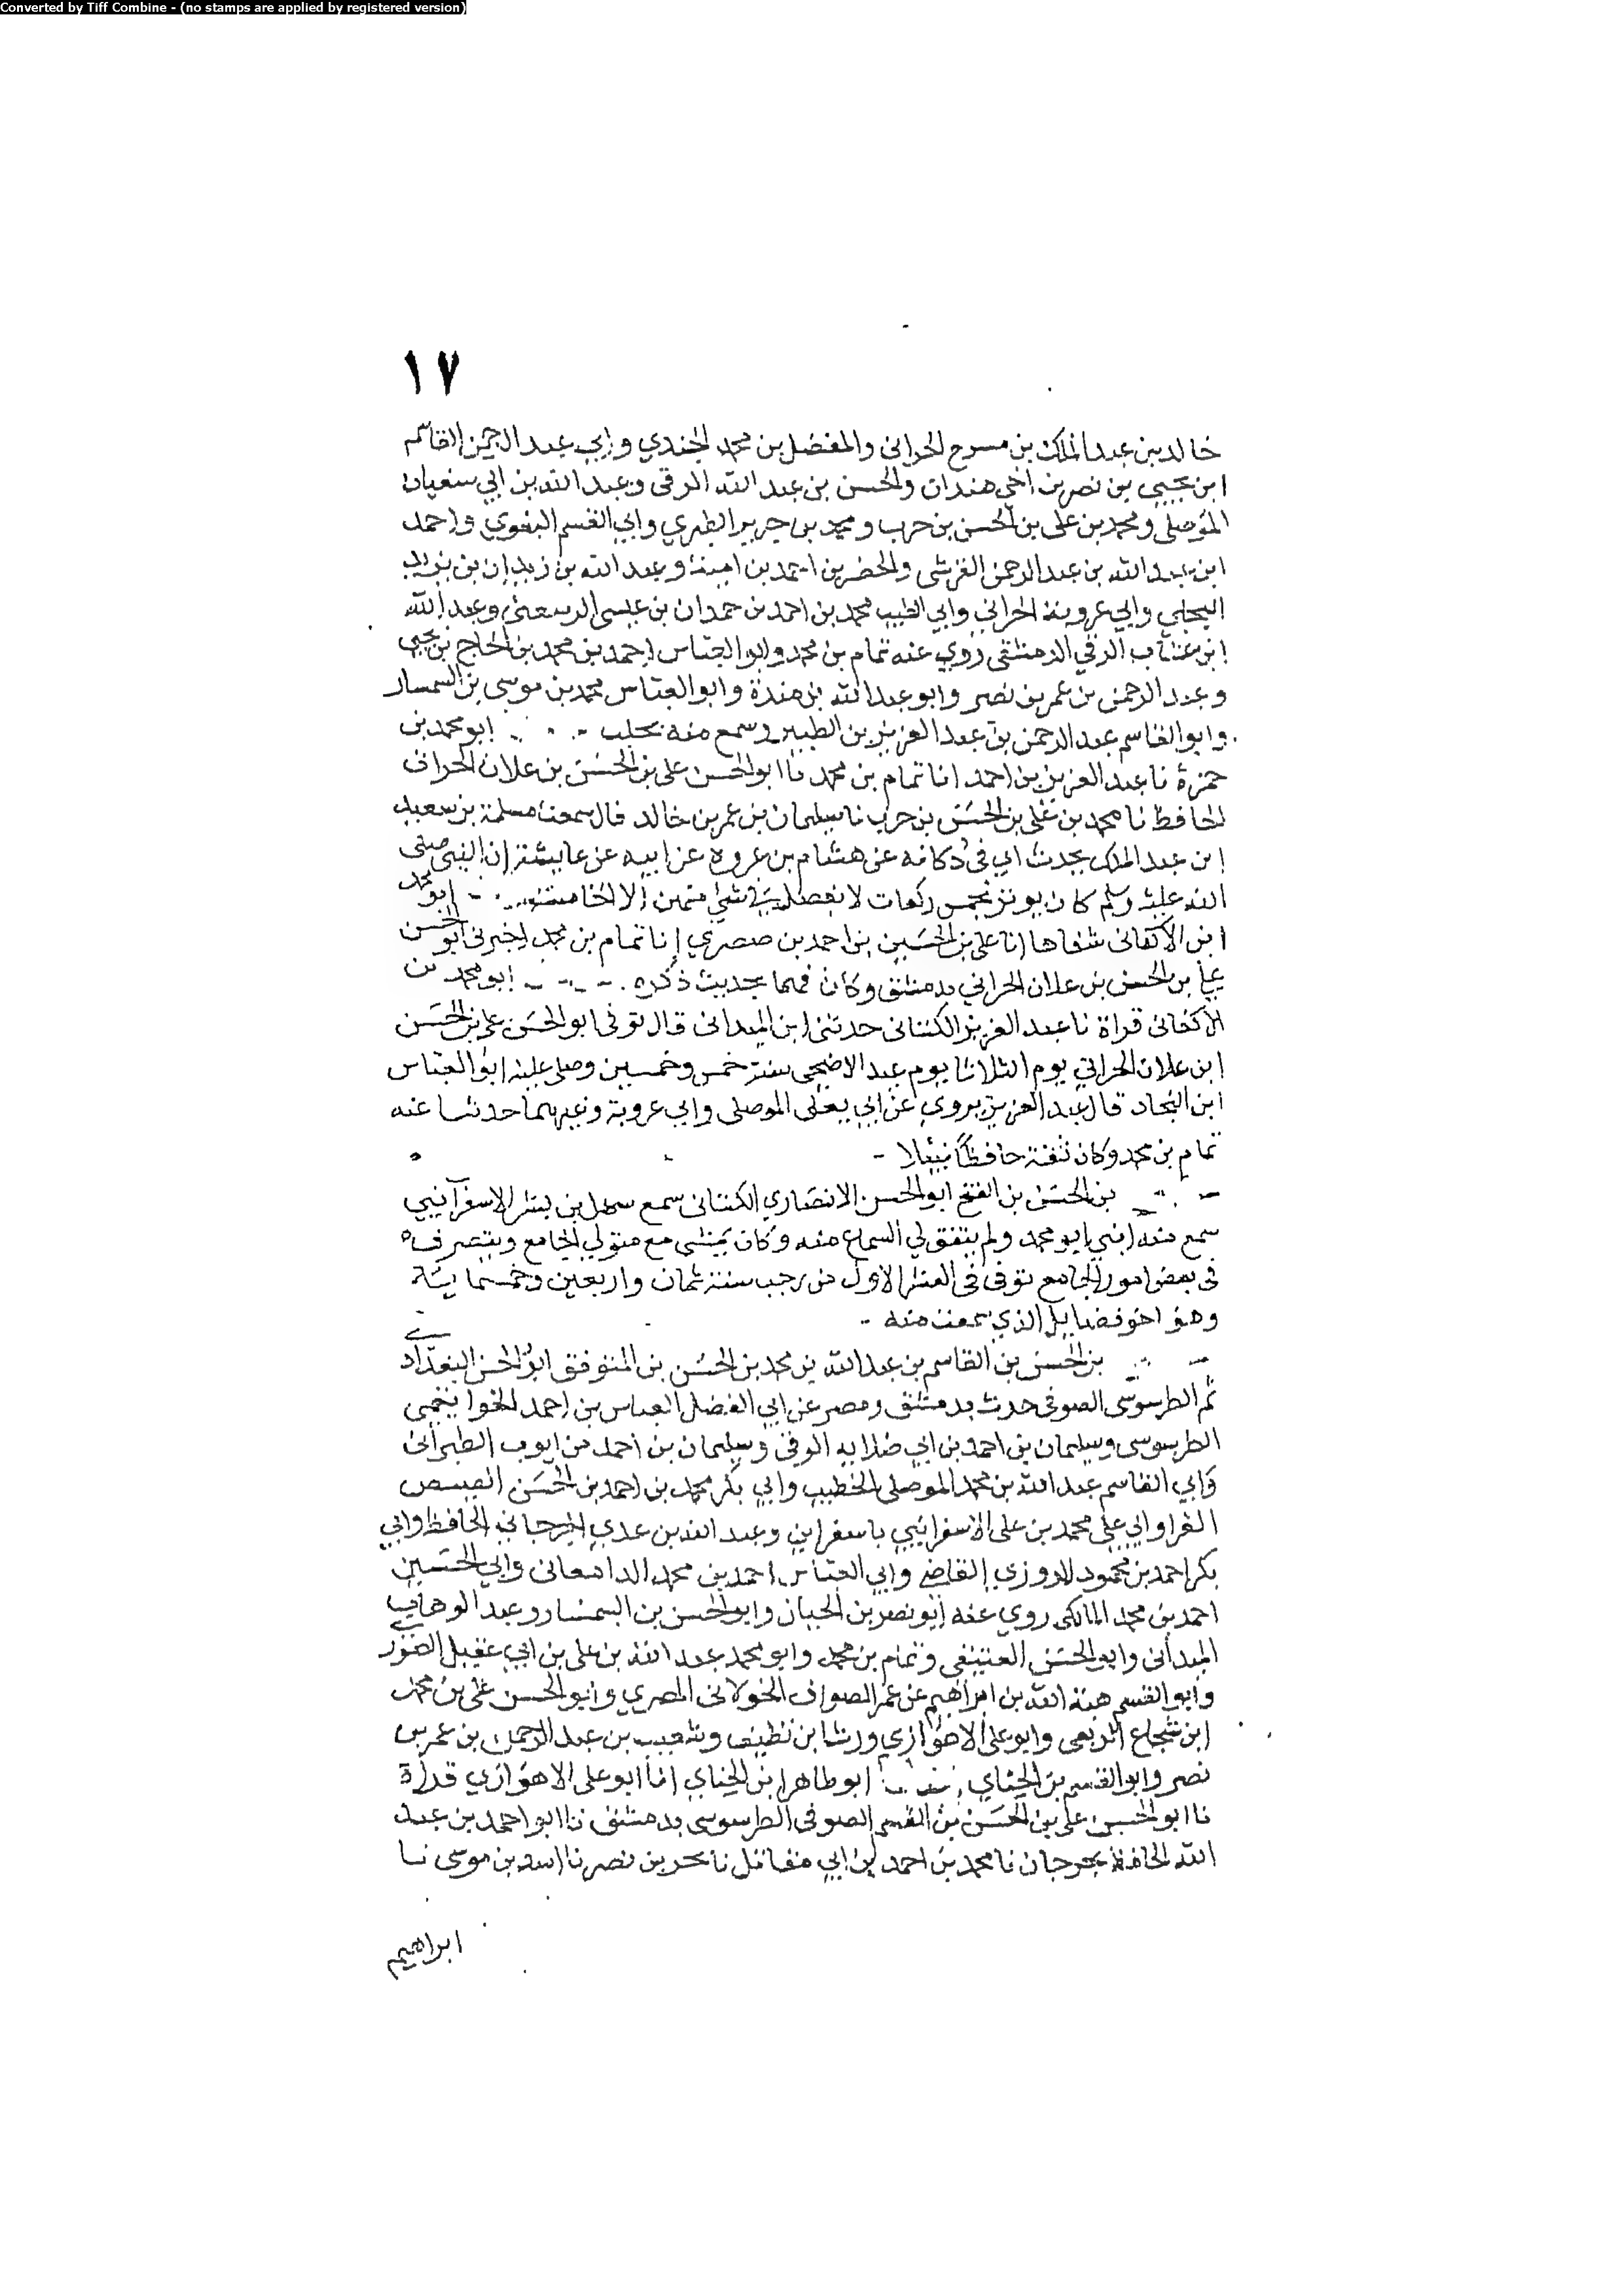 Converted by Tiff Combine - (no stamps are applied by registered version)
١٧
خالد بن عبد الملك بن مسرح الحراني والمفضل بن محمد الجندي وابي عبد الرحمن القاسم
ابن يحيى بن نصر بن اخي هندان والحسن بن عبد الله الرقي وعبد الله بن ابي سفيان
الموصلي ومحمد بن علي بن الحسن بن حرب ومحمد بن جرير الطبري وابي القسم البغوي واحمد
ابن عبد الله بن عبد الرحمن القرشي والخضر بن احمد بن امية وعبد الله بن زيدان بن بريد
البجلي وابي عروبة الحراني وابي الطيب محمد بن احمد بن حمدان بن عيسى الرسعني وعبد الله
ابن عتاب الزفتي الدمشقي روي عنه تمام بن محمد وابو العباس احمد بن محمد بن الحاج بن يحيى
وعبد الرحمن بن عمر بن نصر وابو عبد الله بن مندة وابو العباس محمد بن موسى بن السمسار
وابو القاسم عبد الرحمن بن عبد العزيز بن الطبيز وسمع منه بحلب ابو محمد بن
حمزة نا عبد العزيز بن احمد انا تمام بن محمد نا ابو الحسن علي بن الحسن بن علان الحراني
الحافظ نا محمد بن علي بن الحسن بن حرب نا سليمان بن عمر بن خالد قال سمعت مسلمة بن سعيد
ابن عبد الملك يحدث ابي في دكانه عن هشام بن عروة عن ابيه عن عايشة ان النبي صلى
الله عليه وسلم كان يوتر بخمس ركعات لا يفصل في شي منهن الا الخامسة ابو محمد
ابن الاكفاني شفاها انا علي بن الحسين بن احمد بن صصري انا تمام بن محمد اخبرني ابو الحسن
علي بن الحسن بن علان الحراني بدمشق وكان فهما بحديث ذكره ابو محمد بن
الاكفاني قراة نا عبد العزيز الكتاني حدثني ابن الميداني قال توفي ابو الحسن علي بن الحسن
ابن علان الحراني يوم الثلاثا يوم عيد الاضحى سنة خمس وخمسين وصلى عليه ابو العباس
ابن النجاد قال عبد العزيز يروي عن ابي يعلى الموصلي وابي عروبة وغيرهما حدثنا عنه
تمام بن محمد وكان ثقة حافظا نبيلا
بن الحسن بن الفتح ابو الحسن الانصاري الكتاني سمع سهل بن بشر الاسفرآئيني
سمع منه ابني ابو محمد ولم يتفق لي السماع منه وكان يمشي مع متولي الجامع ويتصرف
في بعض امور الجامع توفي في العشر الاول من رجب سنة ثمان واربعين وخمسماية
وهو اخو فضايل الذي سمعت منه
بن الحسن بن القاسم بن عبد الله بن محمد بن الحسن بن المتوفق ابو الحسن البغدادي
ثم الطرسوسي الصوفي حدث بدمشق ومصر عن ابي الفضل العباس بن احمد الخواتيمي
الطرسوسي وسليمان بن احمد بن ابي صلابه الوفي وسليمان بن احمد بن ايوب الطبراني
وابي القاسم عبد الله بن محمد الموصلي الخطيب وابي بكر محمد بن احمد بن الحسن
وابي علي محمد بن علي الاسفرايني باسفراين وعبد الله بن عدي الجرجاني الحافظ وابي
بكر احمد بن محمود القاضي وابي العباس احمد بن محمد الدامغاني وابي الحسين
احمد بن محمد المالكي روي عنه ابو نصر بن الجبان وابو الحسن بن السمسار وعبد الوهاب
الميداني وابو الحسن العتيقي وتمام بن محمد وابو محمد عبد الله بن علي بن ابي عقيل الصوري
وابو القسم هبة الله بن ابراهيم عن عمر الصواف الخولاني المصري وابو الحسن علي بن محمد
ابن شجاع الربعي وابو علي الاهوازي ورشا بن نظيف وشعيب بن عبد الرحمن بن عمر بن
نصر وابو القسم بن الحناي ابو طاهر بن الحناي انا ابو علي الاهوازي قراة
نا ابو الحسن علي بن الحسن بن القسم الصوفي الطرسوسي بدمشق نا ابو احمد بن عبد
الله الحافظ بجرجان نا محمد بن احمد بن ابي مقاتل نا بحر بن نصر نا اسد بن موسى نا
ابراهيم